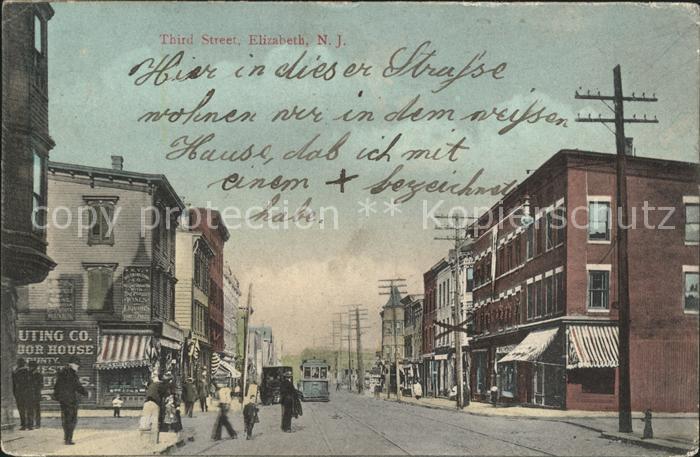 Third Street, Elizabeth, N. J.
Hier in dieser Straße
wohnen wir in dem weißen
Hause, daß ich mit
einem + bezeichnet
habe.
copy protection ** Kopierschutz **
UTING CO.
OR HOUSE